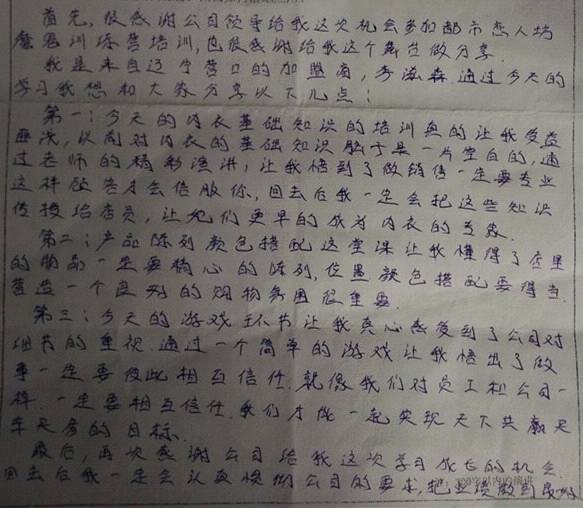 首先,很感谢公司领导给我这次机会参加都市恋人坊
魔鬼训练营培训,也很感谢给我这个舞台做分享.
我是来自辽宁营口的加盟商,李滋森.通过今天的
学习我想和大家分享以下几点:
第一:今天的内衣基础知识的培训真的让我受益
匪浅,以前对内衣的基础知识脑子是一片空白的,通
过老师的精彩演讲,让我悟到了做销售一定要专业
这样顾客才会信服你,回去后我一定会把这些知识
传授给店员,让她们更早的成为内衣的专家.
第二:产品陈列颜色搭配这堂课让我懂得了店里
的商品一定要精心的陈列,位置颜色搭配要得当.
营造一个良好的购物氛围很重要.
第三:今天的游戏环节让我真心感受到了公司对
细节的重视.通过一个简单的游戏让我悟出了做
事一定要彼此相互信任.就像我们对员工和公司一
样.一定要相互信任.我们才能一起实现天下共赢是
的目标.
最后,再次感谢公司给我这次学习成长的机会.
回去后我一定会认真惯彻公司的要求,把业绩做到最